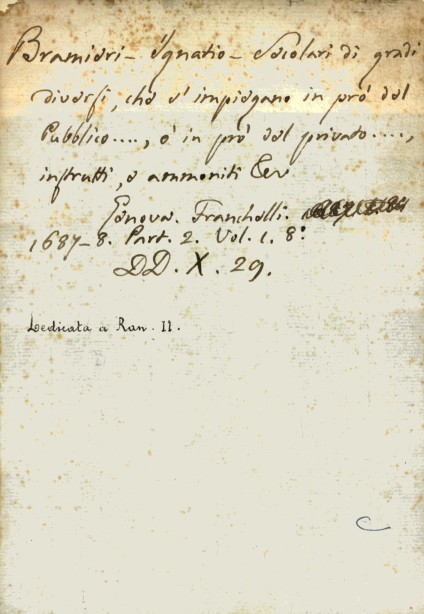 Bramieri - Ignatio - Scolari di gradi
diversi, che s'impiegano in prò del
Pubblico...., ò in prò del privato....,
instrutti, e ammoniti Ecc
Genova. Franchelli.
1687-8. Part. 2. Vol. 1. 8°
DD. X. 29.
Dedicata a Ran. II.